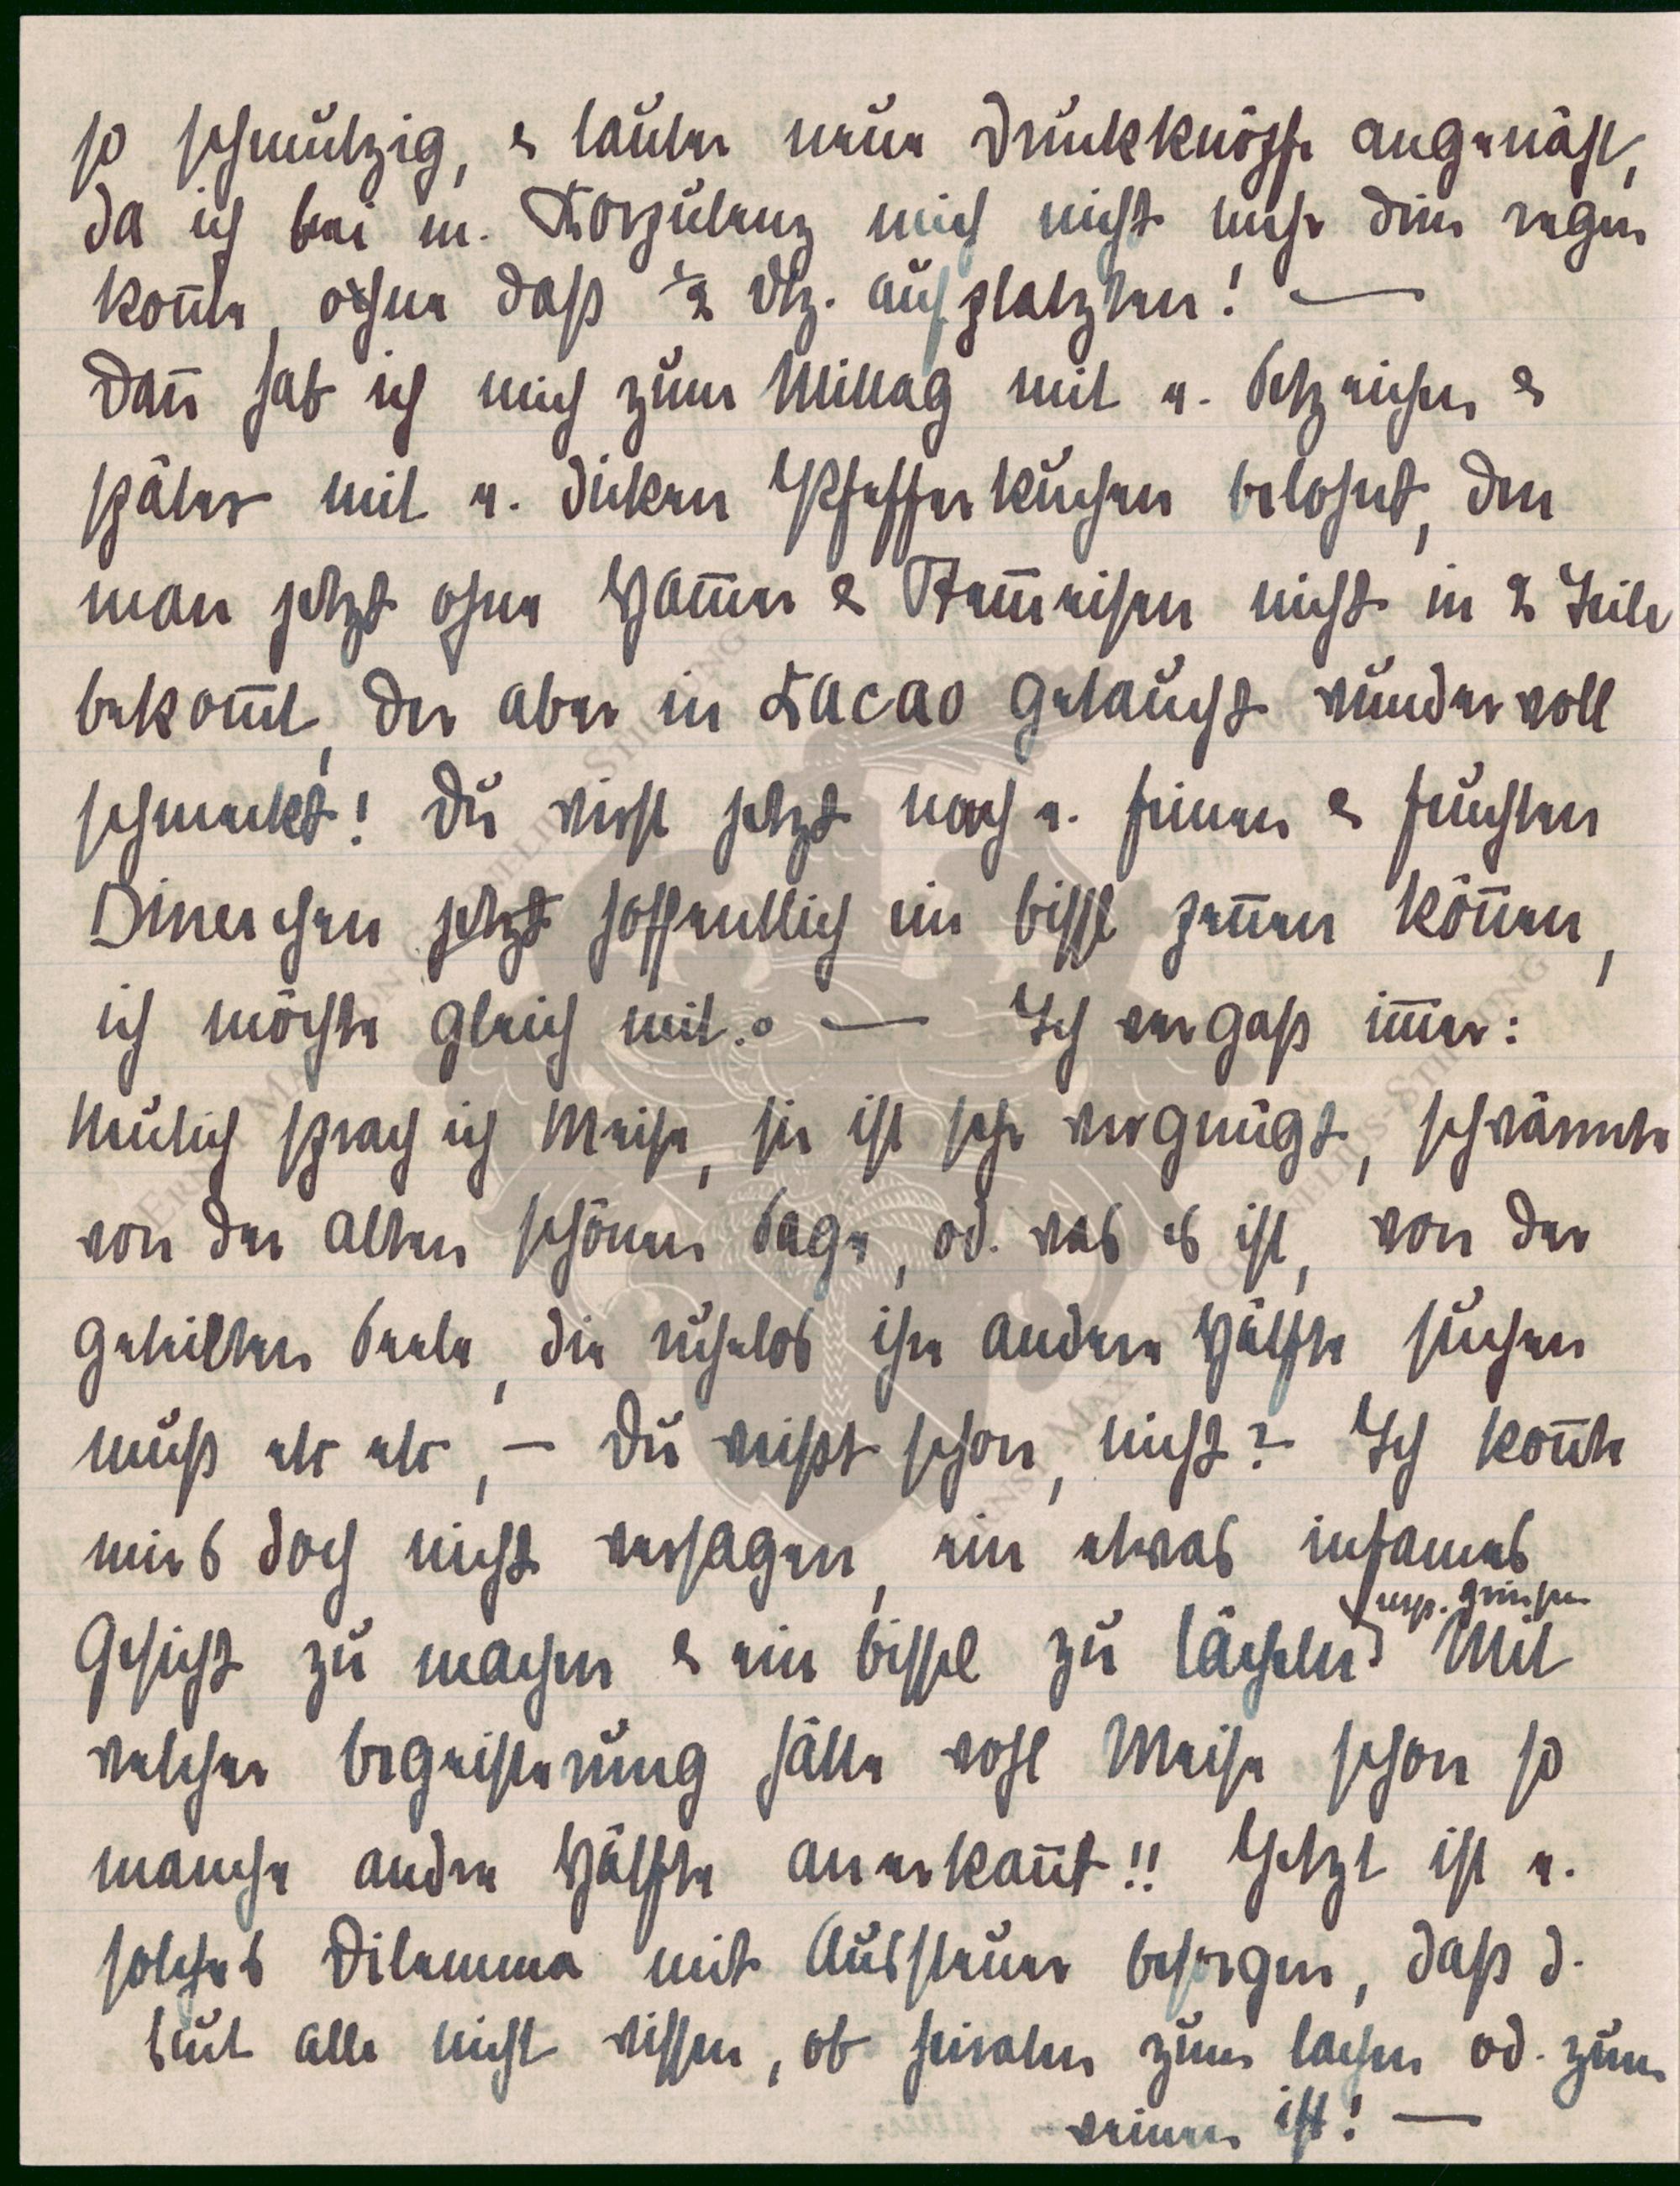 so schmutzig, & lauter neue Druckknöpfe angenäht,
da ich bei m. Korpulenz mich nicht mehr drin regen
konnte, ohne daß ½ Dtz. aufplatzten! —
Dann hab ich mich zum Mittag mit e. Setzeichen &
später mit e. dicken Pfefferkuchen belohnt, den
man jetzt ohne Hammer & Stemmeisen nicht in 2 Teile
bekommt, der aber in Kacao getaucht wundervoll
schmeckt! Du wirst jetzt nach e. feinen & feuchten
Dinerchen jetzt hoffentlich ein bissl pennen können,
ich möchte gleich mit. — Ich vergaß immer:
Neulich sprach ich Meise, sie ist sehr vergnügt, schwärmte
von der alten schönen Sage, od. was es ist, von der
geteilten Seele, die ruhelos ihre andere Hälfte suchen
muß etc etc, — Du weißt schon, nicht? — Ich konnte
mirs doch nicht versagen, ein etwas infames
resp. grinsen
Gesicht zu machen & ein bissel zu lächeln. Mit
welcher Begeisterung hätte wohl Meise schon so
manche andre Hälfte anerkannt!! Jetzt ist e.
solches Dilemma mit Aussteuer besorgen, daß d.
Leut alle nicht wissen, ob heiraten zum lachen od. zum
weinen ist! —
ERNST-MAX VON GRUNELIUS-STIFTUNG